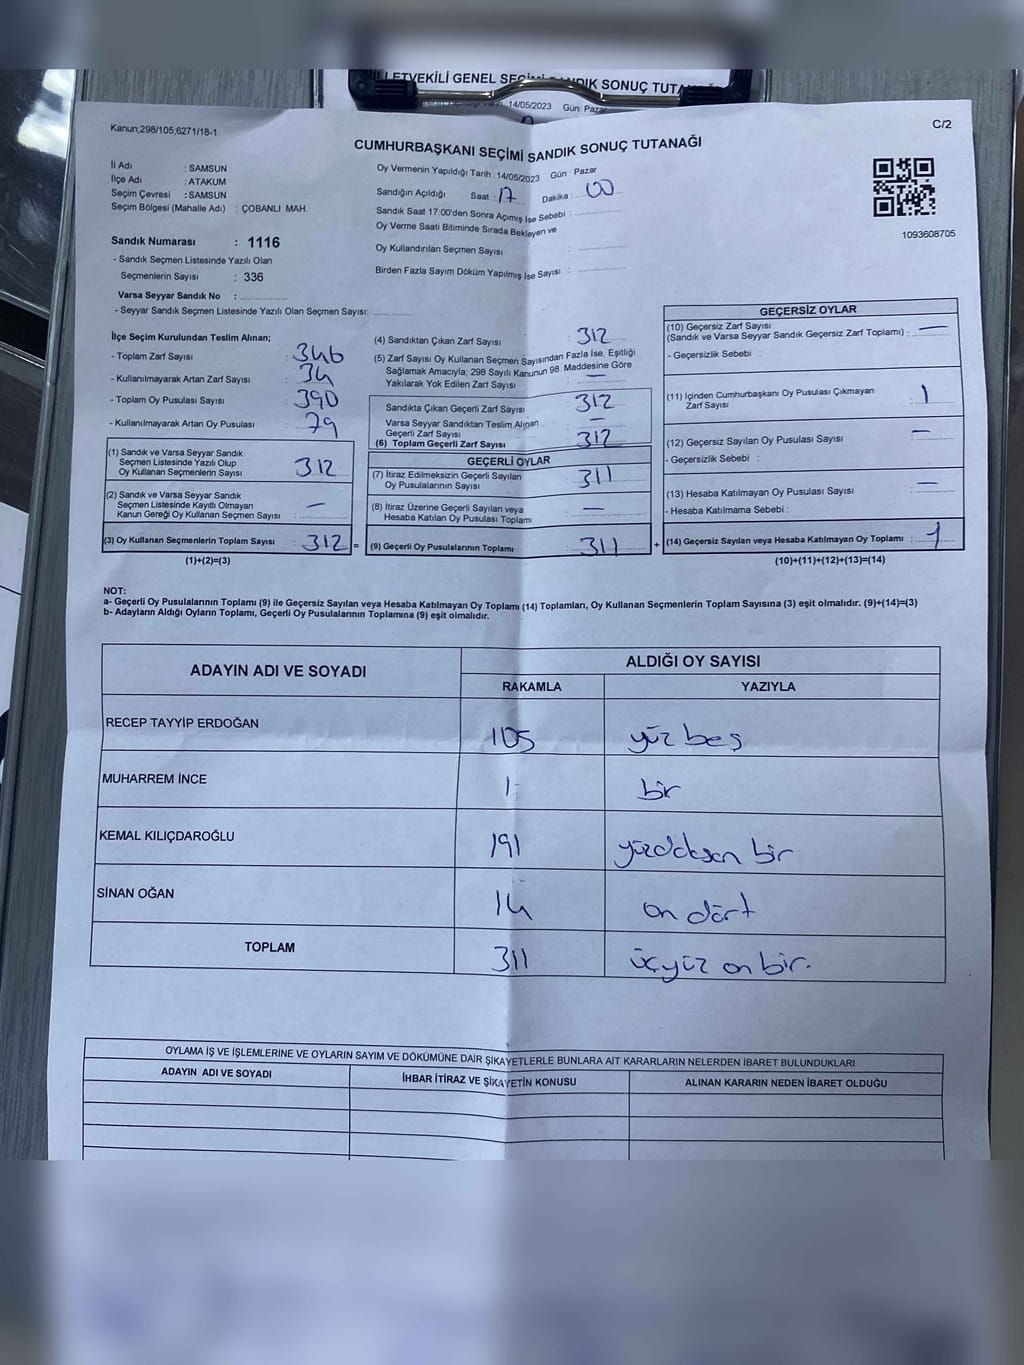 LETVEKİLİ GENEL SEÇİMİ SANDIK SONUÇ TUTANAĞI
14/05/2023 Gün: Pazar
Kanun;298/105,6271/18-1
C/2
CUMHURBAŞKANI SEÇİMİ SANDIK SONUÇ TUTANAĞI
İl Adı : SAMSUN
İlçe Adı : ATAKUM
Seçim Çevresi : SAMSUN
Seçim Bölgesi (Mahalle Adı) : ÇOBANLI MAH.
Sandık Numarası : 1116
- Sandık Seçmen Listesinde Yazılı Olan
Seçmenlerin Sayısı : 336
Varsa Seyyar Sandık No :
- Seyyar Sandık Seçmen Listesinde Yazılı Olan Seçmen Sayısı:
Oy Vermenin Yapıldığı Tarih :14/05/2023 Gün : Pazar
Sandığın Açıldığı Saat : 17 Dakika : 00
Sandık Saat 17:00'den Sonra Açımış İse Sebebi :
Oy Verme Saati Bitiminde Sırada Bekleyen ve
Oy Kullandırılan Seçmen Sayısı :
Birden Fazla Sayım Döküm Yapılmış İse Sayısı :
1093608705
İlçe Seçim Kurulundan Teslim Alınan;
- Toplam Zarf Sayısı : 346
- Kullanılmayarak Artan Zarf Sayısı : 34
- Toplam Oy Pusulası Sayısı : 390
- Kullanılmayarak Artan Oy Pusulası : 79
(1) Sandık ve Varsa Seyyar Sandık
Seçmen Listesinde Yazılı Olup
Oy Kullanan Seçmenlerin Sayısı : 312
(2) Sandık ve Varsa Seyyar Sandık
Seçmen Listesinde Kayıtlı Olmayan
Kanun Gereği Oy Kullanan Seçmen Sayısı : —
(3) Oy Kullanan Seçmenlerin Toplam Sayısı : 312 =
(1)+(2)=(3)
(4) Sandıktan Çıkan Zarf Sayısı : 312
(5) Zarf Sayısı Oy Kullanan Seçmen Sayısından Fazla İse, Eşitliği
Sağlamak Amacıyla; 298 Sayılı Kanunun 98. Maddesine Göre
Yakılarak Yok Edilen Zarf Sayısı : —
Sandıkta Çıkan Geçerli Zarf Sayısı : 312
Varsa Seyyar Sandıktan Teslim Alınan
Geçerli Zarf Sayısı : —
(6) Toplam Geçerli Zarf Sayısı : 312
GEÇERLİ OYLAR
(7) İtiraz Edilmeksizin Geçerli Sayılan
Oy Pusulalarının Sayısı : 311
(8) İtiraz Üzerine Geçerli Sayılan veya
Hesaba Katılan Oy Pusulası Toplamı : —
(9) Geçerli Oy Pusulalarının Toplamı : 311 +
GEÇERSİZ OYLAR
(10) Geçersiz Zarf Sayısı
(Sandık ve Varsa Seyyar Sandık Geçersiz Zarf Toplamı) : —
- Geçersizlik Sebebi :
(11) İçinden Cumhurbaşkanı Oy Pusulası Çıkmayan
Zarf Sayısı : 1
(12) Geçersiz Sayılan Oy Pusulası Sayısı : —
- Geçersizlik Sebebi :
(13) Hesaba Katılmayan Oy Pusulası Sayısı : —
- Hesaba Katılmama Sebebi :
(14) Geçersiz Sayılan veya Hesaba Katılmayan Oy Toplamı : 1
(10)+(11)+(12)+(13)=(14)
NOT:
a- Geçerli Oy Pusulalarının Toplamı (9) ile Geçersiz Sayılan veya Hesaba Katılmayan Oy Toplamı (14) Toplamları, Oy Kullanan Seçmenlerin Toplam Sayısına (3) eşit olmalıdır. (9)+(14)=(3)
b- Adayların Aldığı Oyların Toplamı, Geçerli Oy Pusulalarının Toplamına (9) eşit olmalıdır.
ADAYIN ADI VE SOYADI ALDIĞI OY SAYISI
RAKAMLA YAZIYLA
RECEP TAYYİP ERDOĞAN 105 yüz beş
MUHARREM İNCE 1- bir
KEMAL KILIÇDAROĞLU 191 yüzdoksan bir
SİNAN OĞAN 14 on dört
TOPLAM 311 üçyüz on bir.
OYLAMA İŞ VE İŞLEMLERİNE VE OYLARIN SAYIM VE DÖKÜMÜNE DAİR ŞİKAYETLERLE BUNLARA AİT KARARLARIN NELERDEN İBARET BULUNDUKLARI
ADAYIN ADI VE SOYADI İHBAR İTİRAZ VE ŞİKAYETİN KONUSU ALINAN KARARIN NEDEN İBARET OLDUĞU